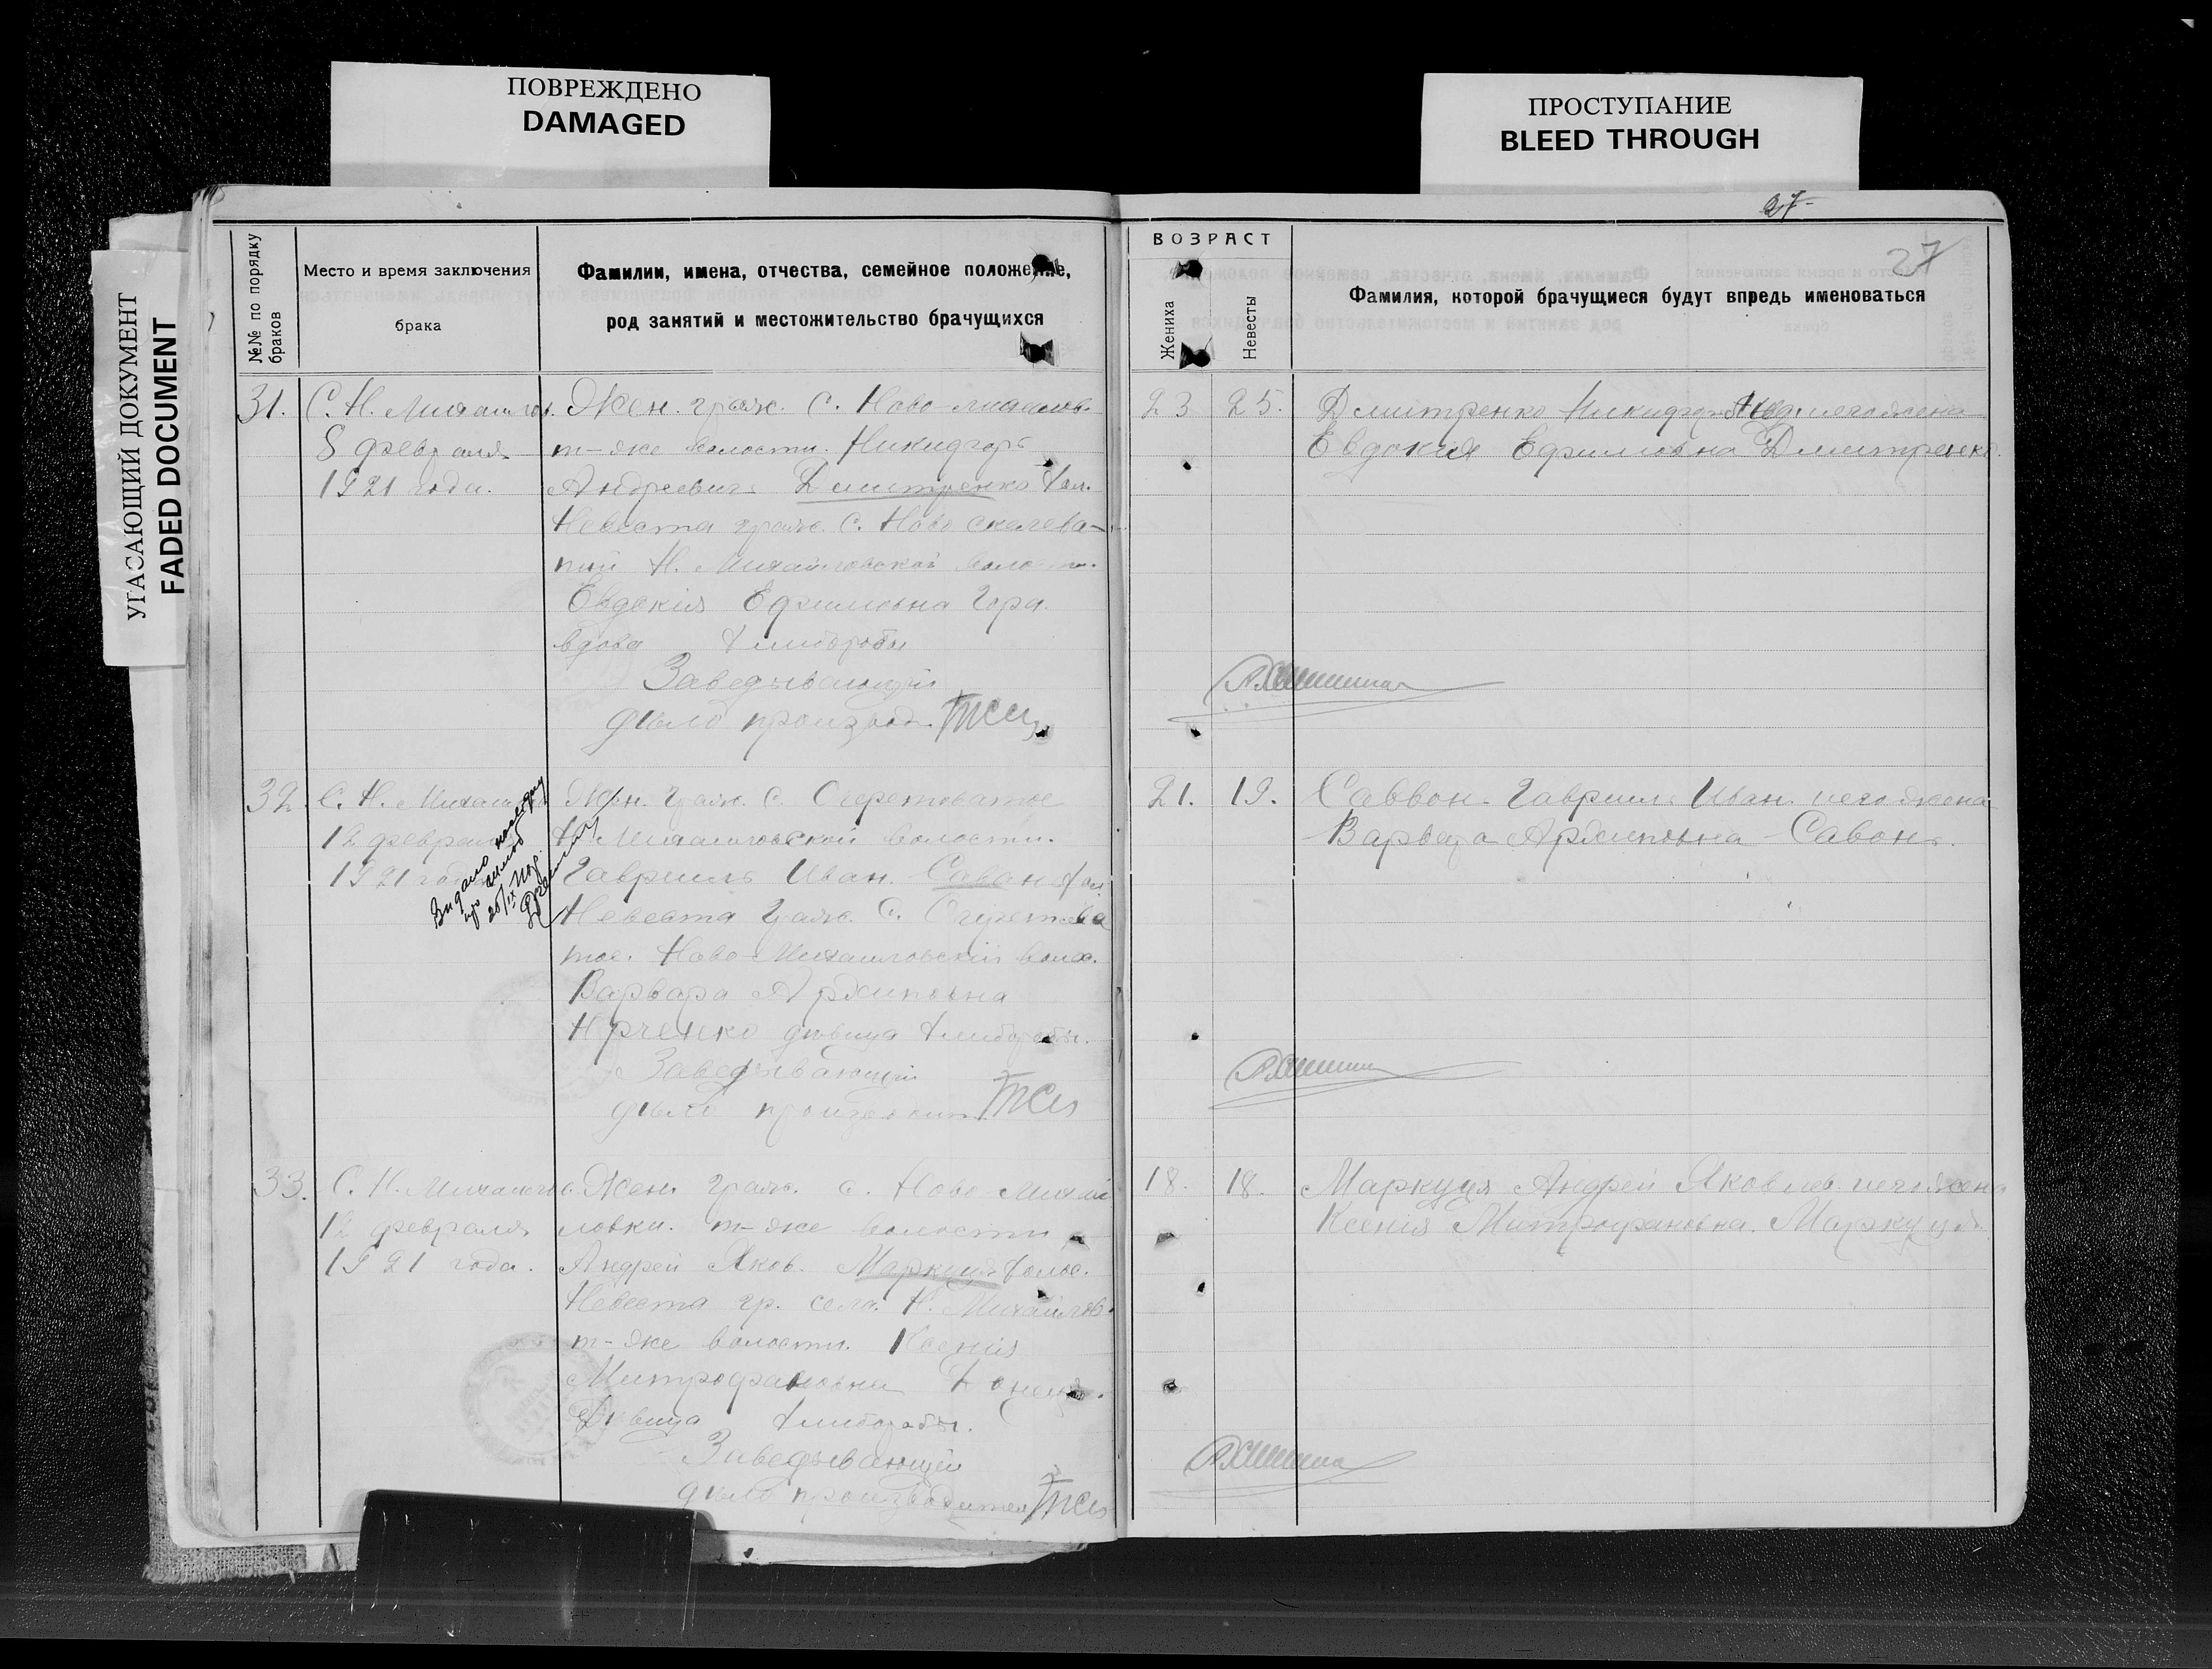 ПОВРЕЖДЕНО
DAMAGED
ПРОСТУПАНИЕ
BLEED THROUGH
УГАСАЮЩИЙ ДОКУМЕНТ
FADED DOCUMENT
27
27
№№ по порядку браков
Место и время заключения
брака
Фамилии, имена, отчества, семейное положение,
род занятий и местожительство брачущихся
ВОЗРАСТ
Жениха
Невесты
Фамилия, которой брачущиеся будут впредь именоваться
31.
С. Н. Михайлов.
8 февраля
1921 года.
Жен. граж. С. Ново-михайлов.
т-же волости. Никифоръ
Андреевичъ Дмитренко хол.
Невеста граж. С. Ново
Н. Михайловской волости.
Евдокія Ефимовна Гора
вдова хлиборобы
Заведывающій
дѣло производ.
23
25.
Дмитренко Никифоръ Анд. его жена
Евдокия Ефимовна Дмитренко.
32.
С. Н. Михайлов
12 февраля
1921 года
Жен. граж. С. Очеретоватое
Н. Михайловской волости.
Гавриилъ Иван. Саван хол.
Невеста граж. С. Очеретова
тое. Ново-Михайловскій волос.
Варвара Архиповна
дѣвица хлиборобы.
Заведывающій
дѣло производит.
21.
19.
Саввон. Гавриилъ Иван. его жена
Варвара Архиповна Савонъ.
33.
С. Н. Михайлов.
12 февраля
1921 года.
Жен. граж. с. Ново Михай
ловки. т-же волости
Андрей Яков. Маркуця холос.
Невеста гр. села. Н. Михайлов.
т-же волости. Ксенія
Митрофановна
Дѣвица хлиборобы.
Заведывающій
дѣло производител
18.
18.
Маркуця Андрей Яковлев. его жена
Ксенія Митрофановна. Маркуця.